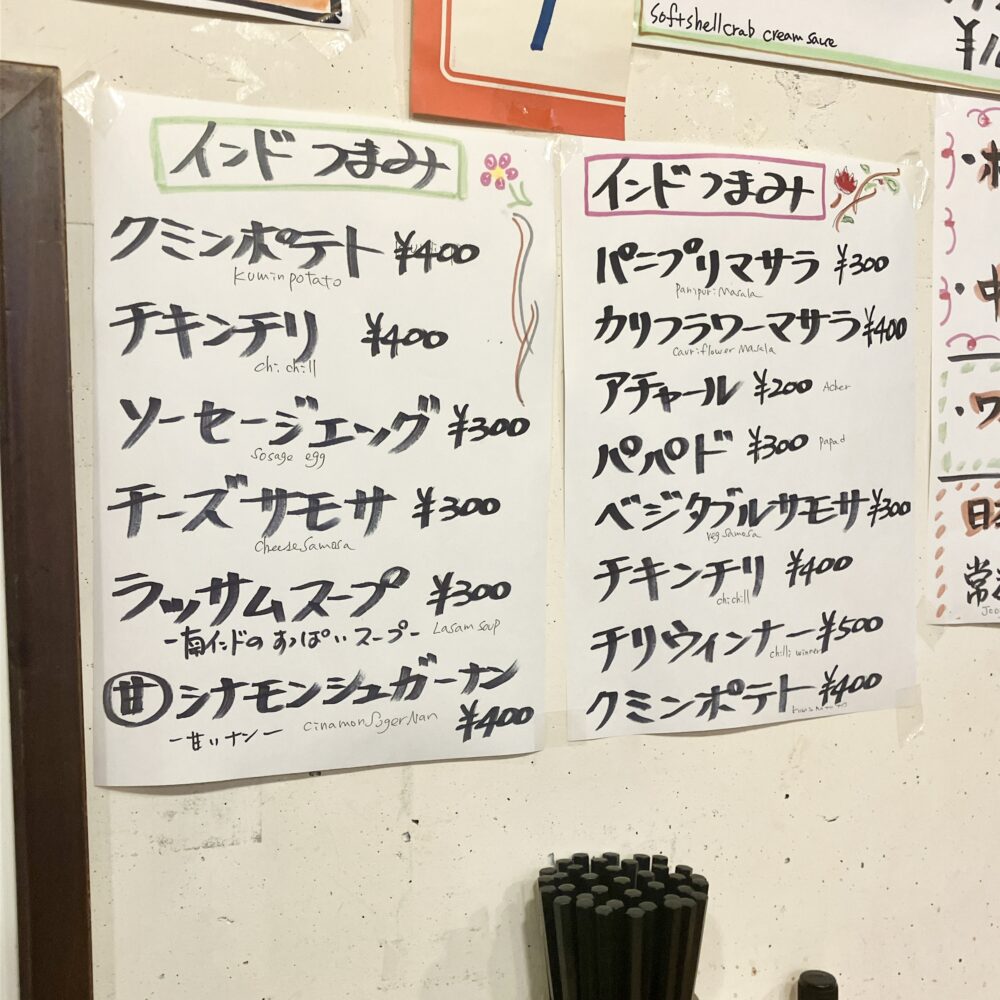 softshellcrab cream sauce
インドつまみ
クミンポテト ¥400
Kuminpotato
チキンチリ ¥400
chichill
ソーセージエッグ ¥300
Sosage egg
チーズサモサ ¥300
cheese Samosa
ラッサムスープ ¥300
-南インドのすっぱいスープ- Lasam soup
甘 シナモンシュガーナン
cinamon Suger Nan
-甘いナン- ¥400
インドつまみ
パニプリマサラ ¥300
panipuri Masala
カリフラワーマサラ ¥400
Cauriflower Masala
アチャール ¥200 Acher
パパド ¥300 papad
ベジタブルサモサ ¥300
veg samosa
チキンチリ ¥400
chichill
チリウィンナー ¥500
chilli winner
クミンポテト ¥400